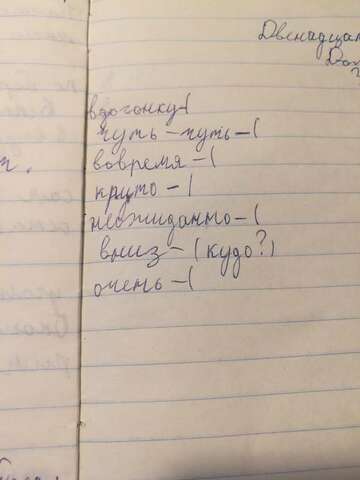 Двенадцат
вдогонку-(
чуть-чуть-(
вовремя-(
круто-(
неожиданно-(
вниз-(кудо?)
очень-(